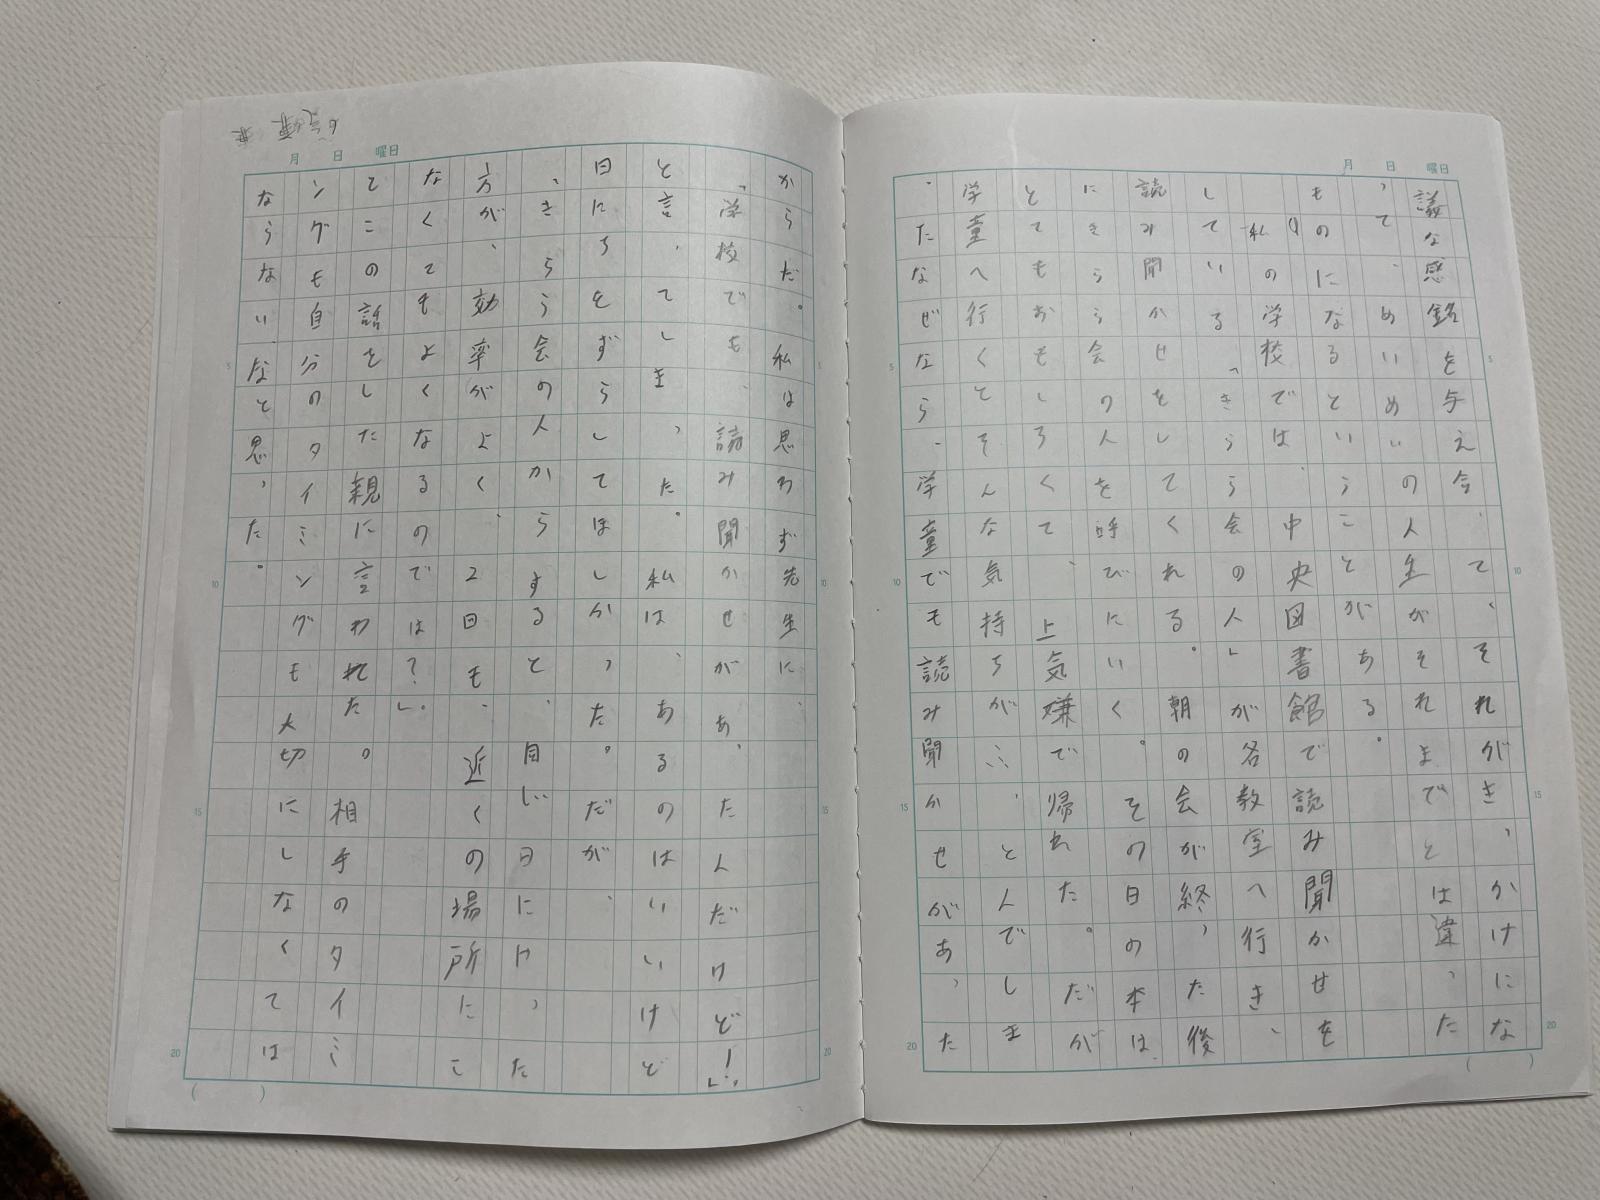 月 日 曜日
議な感銘を与え合って、それがきっかけにな
って、めいめいの人生がそれまでとは違った
ものになるということがある。
私の学校では、中央図書館で読み聞かせを
している「きらら会の人」が各教室へ行き、
読み聞かせをしてくれる。朝の会が終った後
にきらら会の人を呼びにいく。その日の本は、
とてもおもしろくて、上気嫌で帰れた。だが
学童へ行くとそんな気持ちが…、とんでしま
った。なぜなら、学童でも読み聞かせがあった
5
10
15
20
( )
月 日 曜日
からだ。私は思わず先生に、
「学校でも、読み聞かせがあったんだけど!」
と言ってしまった。私は、あるのはいいけど
日にちをずらしてほしかった。だが、
「きらら会の人からすると、同じ日にやった
方が、効率がよく、2回も、近くの場所にこ
なくてもよくなるのでは?」。
てこの話をした親に言われた。相手のタイミ
ングも自分のタイミングも大切にしなくては
ならないなと思った。
5
10
15
20
( )